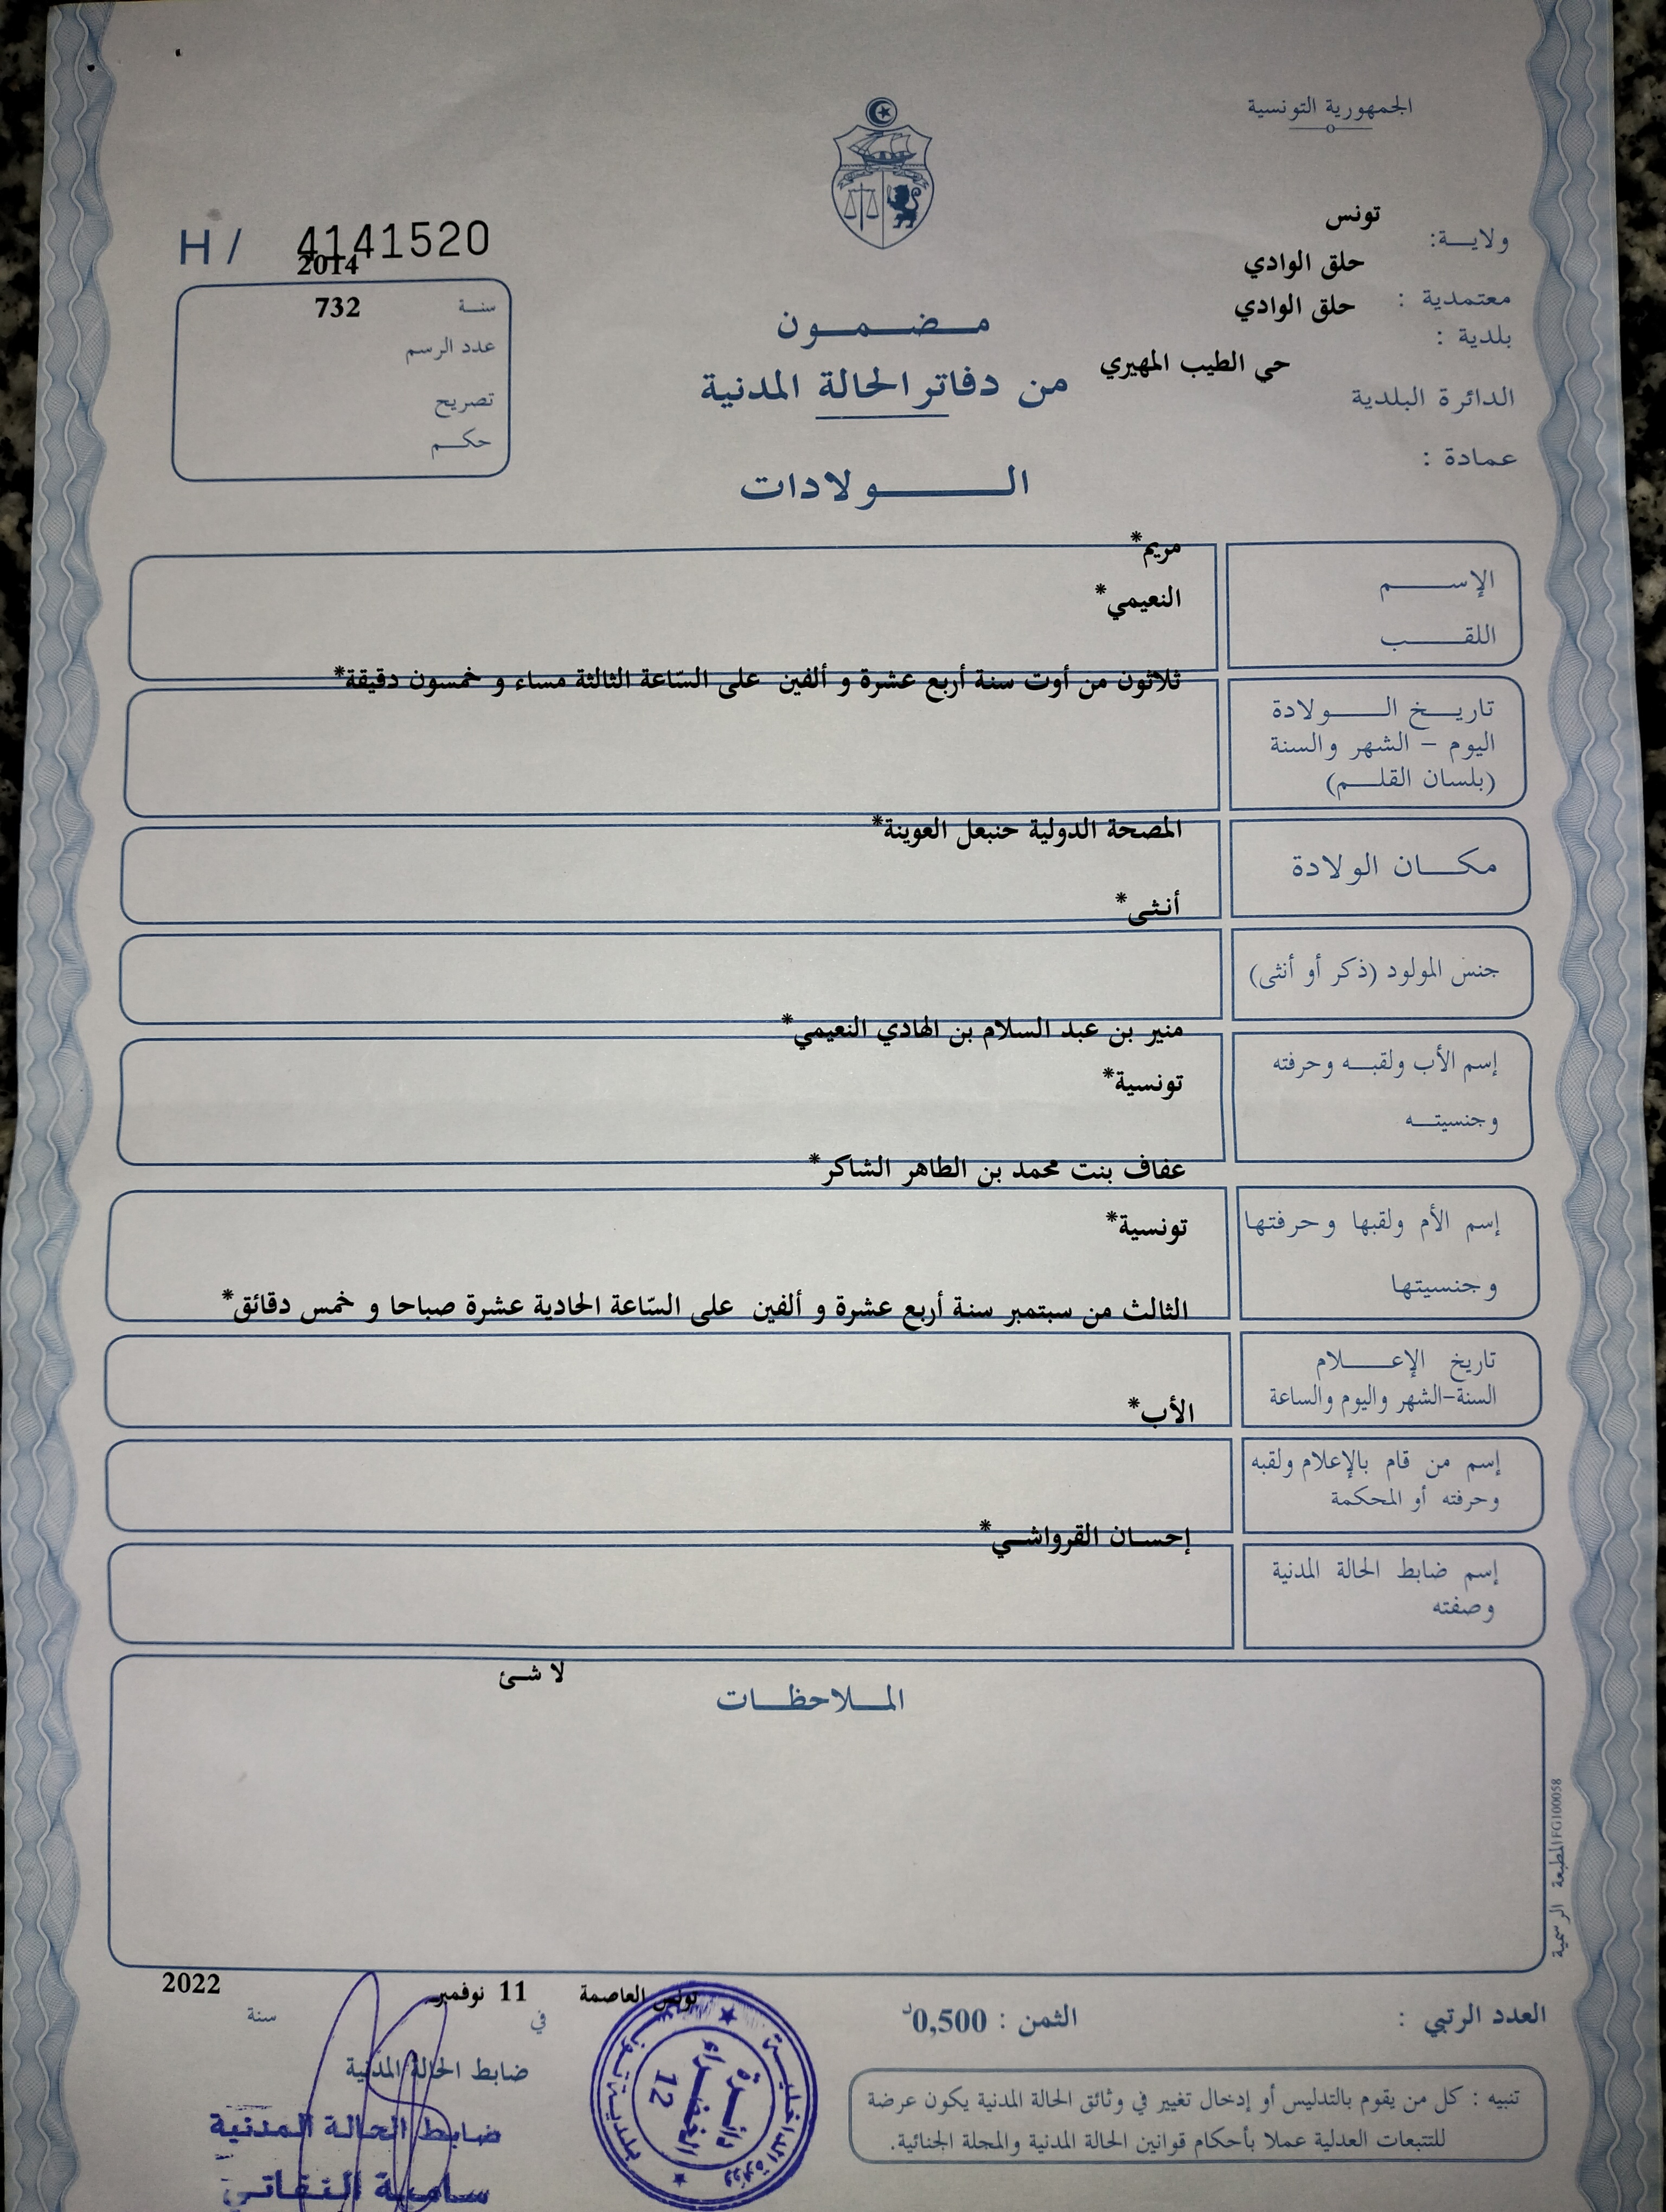 الجمهورية التونسية
ولاية: تونس
معتمدية : حلق الوادي
بلدية : حلق الوادي
الدائرة البلدية حي الطيب المهيري
عمادة :
H / 4141520
سنة 2014
عدد الرسم 732
تصريح
حكم
مضمون
من دفاتر الحالة المدنية
الولادات
الإسم مريم*
اللقب النعيمي*
تاريخ الولادة ثلاثون من أوت سنة أربع عشرة و ألفين على السّاعة الثالثة مساء و خمسون دقيقة*
اليوم - الشهر والسنة
(بلسان القلم)
مكان الولادة المصحة الدولية حنبعل العوينة*
جنس المولود (ذكر أو أنثى) أنثى*
إسم الأب ولقبه وحرفته منير بن عبد السلام بن الهادي النعيمي*
وجنسيته تونسية*
إسم الأم ولقبها وحرفتها عفاف بنت محمد بن الطاهر الشاكر*
وجنسيتها تونسية*
تاريخ الإعلام الثالث من سبتمبر سنة أربع عشرة و ألفين على السّاعة الحادية عشرة صباحا و خمس دقائق*
السنة-الشهر واليوم والساعة
إسم من قام بالإعلام ولقبه الأب*
وحرفته أو المحكمة
إسم ضابط الحالة المدنية إحسان القرواشي*
وصفته
الملاحظات لا شئ
المطبعة الرسمية FG100058
العدد الرتبي :
الثمن : 0,500د
تونس العاصمة في 11 نوفمبر سنة 2022
ضابط الحالة المدنية
ضابط الحالة المدنية
سامية النقاتي
وزارة الداخلية
بلدية تونس
دائرة
الخضراء
12
تنبيه : كل من يقوم بالتدليس أو إدخال تغيير في وثائق الحالة المدنية يكون عرضة
للتتبعات العدلية عملا بأحكام قوانين الحالة المدنية والمجلة الجنائية.